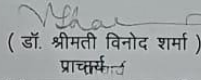 ( डॉ. श्रीमती विनोद शर्मा )
प्राचार्य